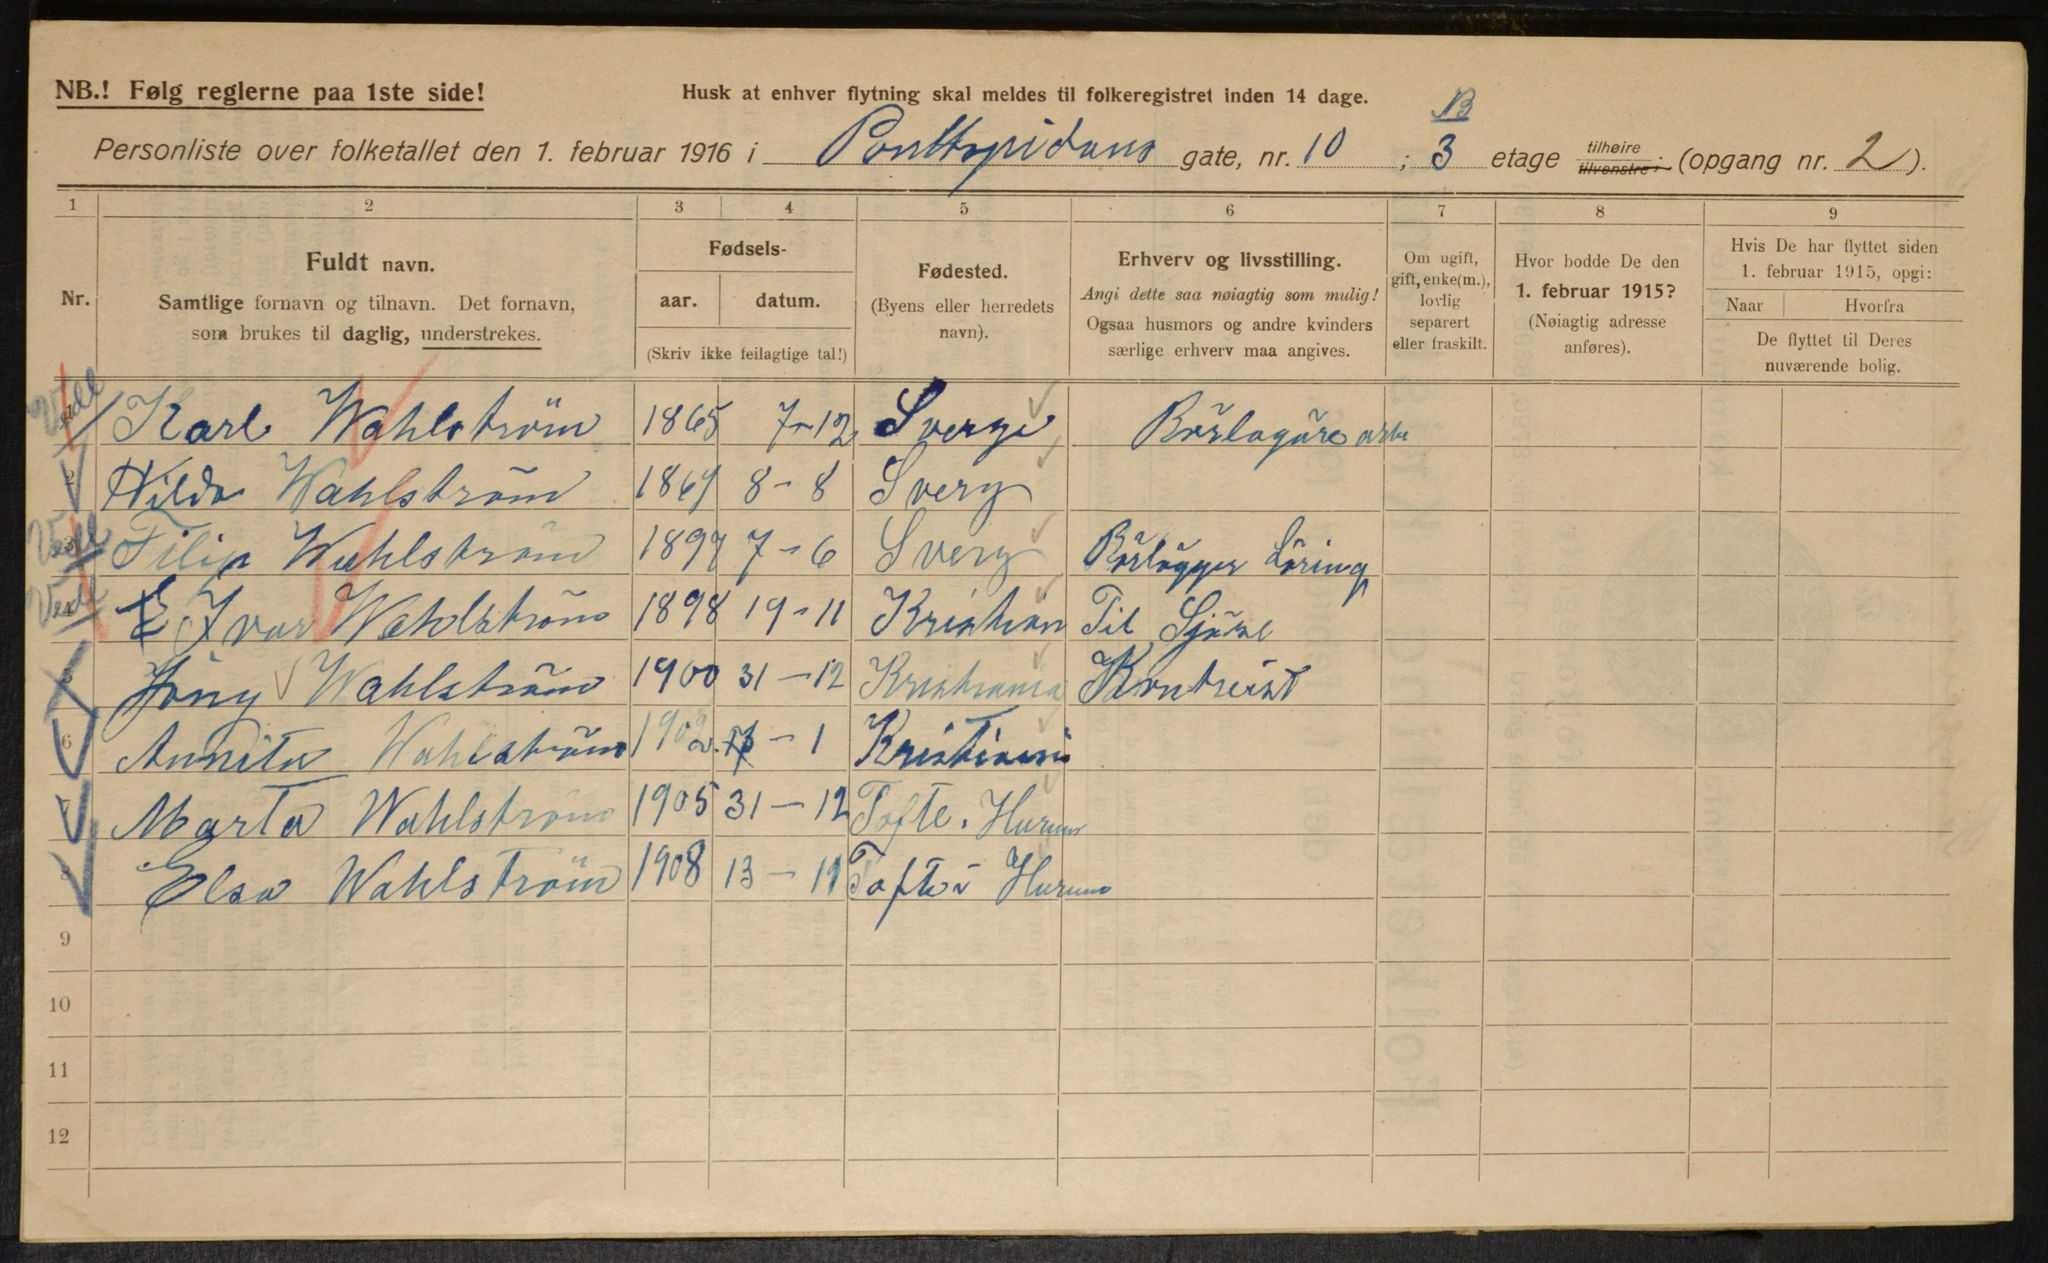 NB.! Følg reglerne paa 1ste side!
Husk at enhver flytning skal meldes til folkeregistret inden 14 dage.
B
Personliste over folketallet den 1. februar 1916 i Ponttopidans gate, nr. 10 ; 3 etage tilhøire tilvenstre; (opgang nr. 2).
1 2 3 4 5 6 7 8 9
Nr.
Fuldt navn.
Samtlige fornavn og tilnavn. Det fornavn,
som brukes til daglig, understrekes.
Fødsels-
aar. datum.
(Skriv ikke feilagtige tal!)
Fødested.
(Byens eller herredets
navn).
Erhverv og livsstilling.
Angi dette saa nøiagtig som mulig!
Ogsaa husmors og andre kvinders
særlige erhverv maa angives.
Om ugift,
gift, enke(m.),
lovlig
separert
eller fraskilt.
Hvor bodde De den
1. februar 1915?
(Nøiagtig adresse
anføres).
Hvis De har flyttet siden
1. februar 1915, opgi:
Naar Hvorfra
De flyttet til Deres
nuværende bolig.
Karl Wahlström 1865 7-12 Sverge
2 Hilda Wahlström 8-8 Sverg
3 Filip Wahlström 1897 7-6 Sverg Rörlägger Läring
4 E Ivar Wahlström 1898 19-11 Kristian Til Sjøs
5 Wahlström 1900 31-12 Kristiania Kontrist
6 Annita Wahlström 1902 - 1 Kristiania
7 Marta Wahlström 1905 31-12 Tofte. Hurum
8 Elsa Wahlström 1908 13-11 Tofte Hurum
9
10
11
12